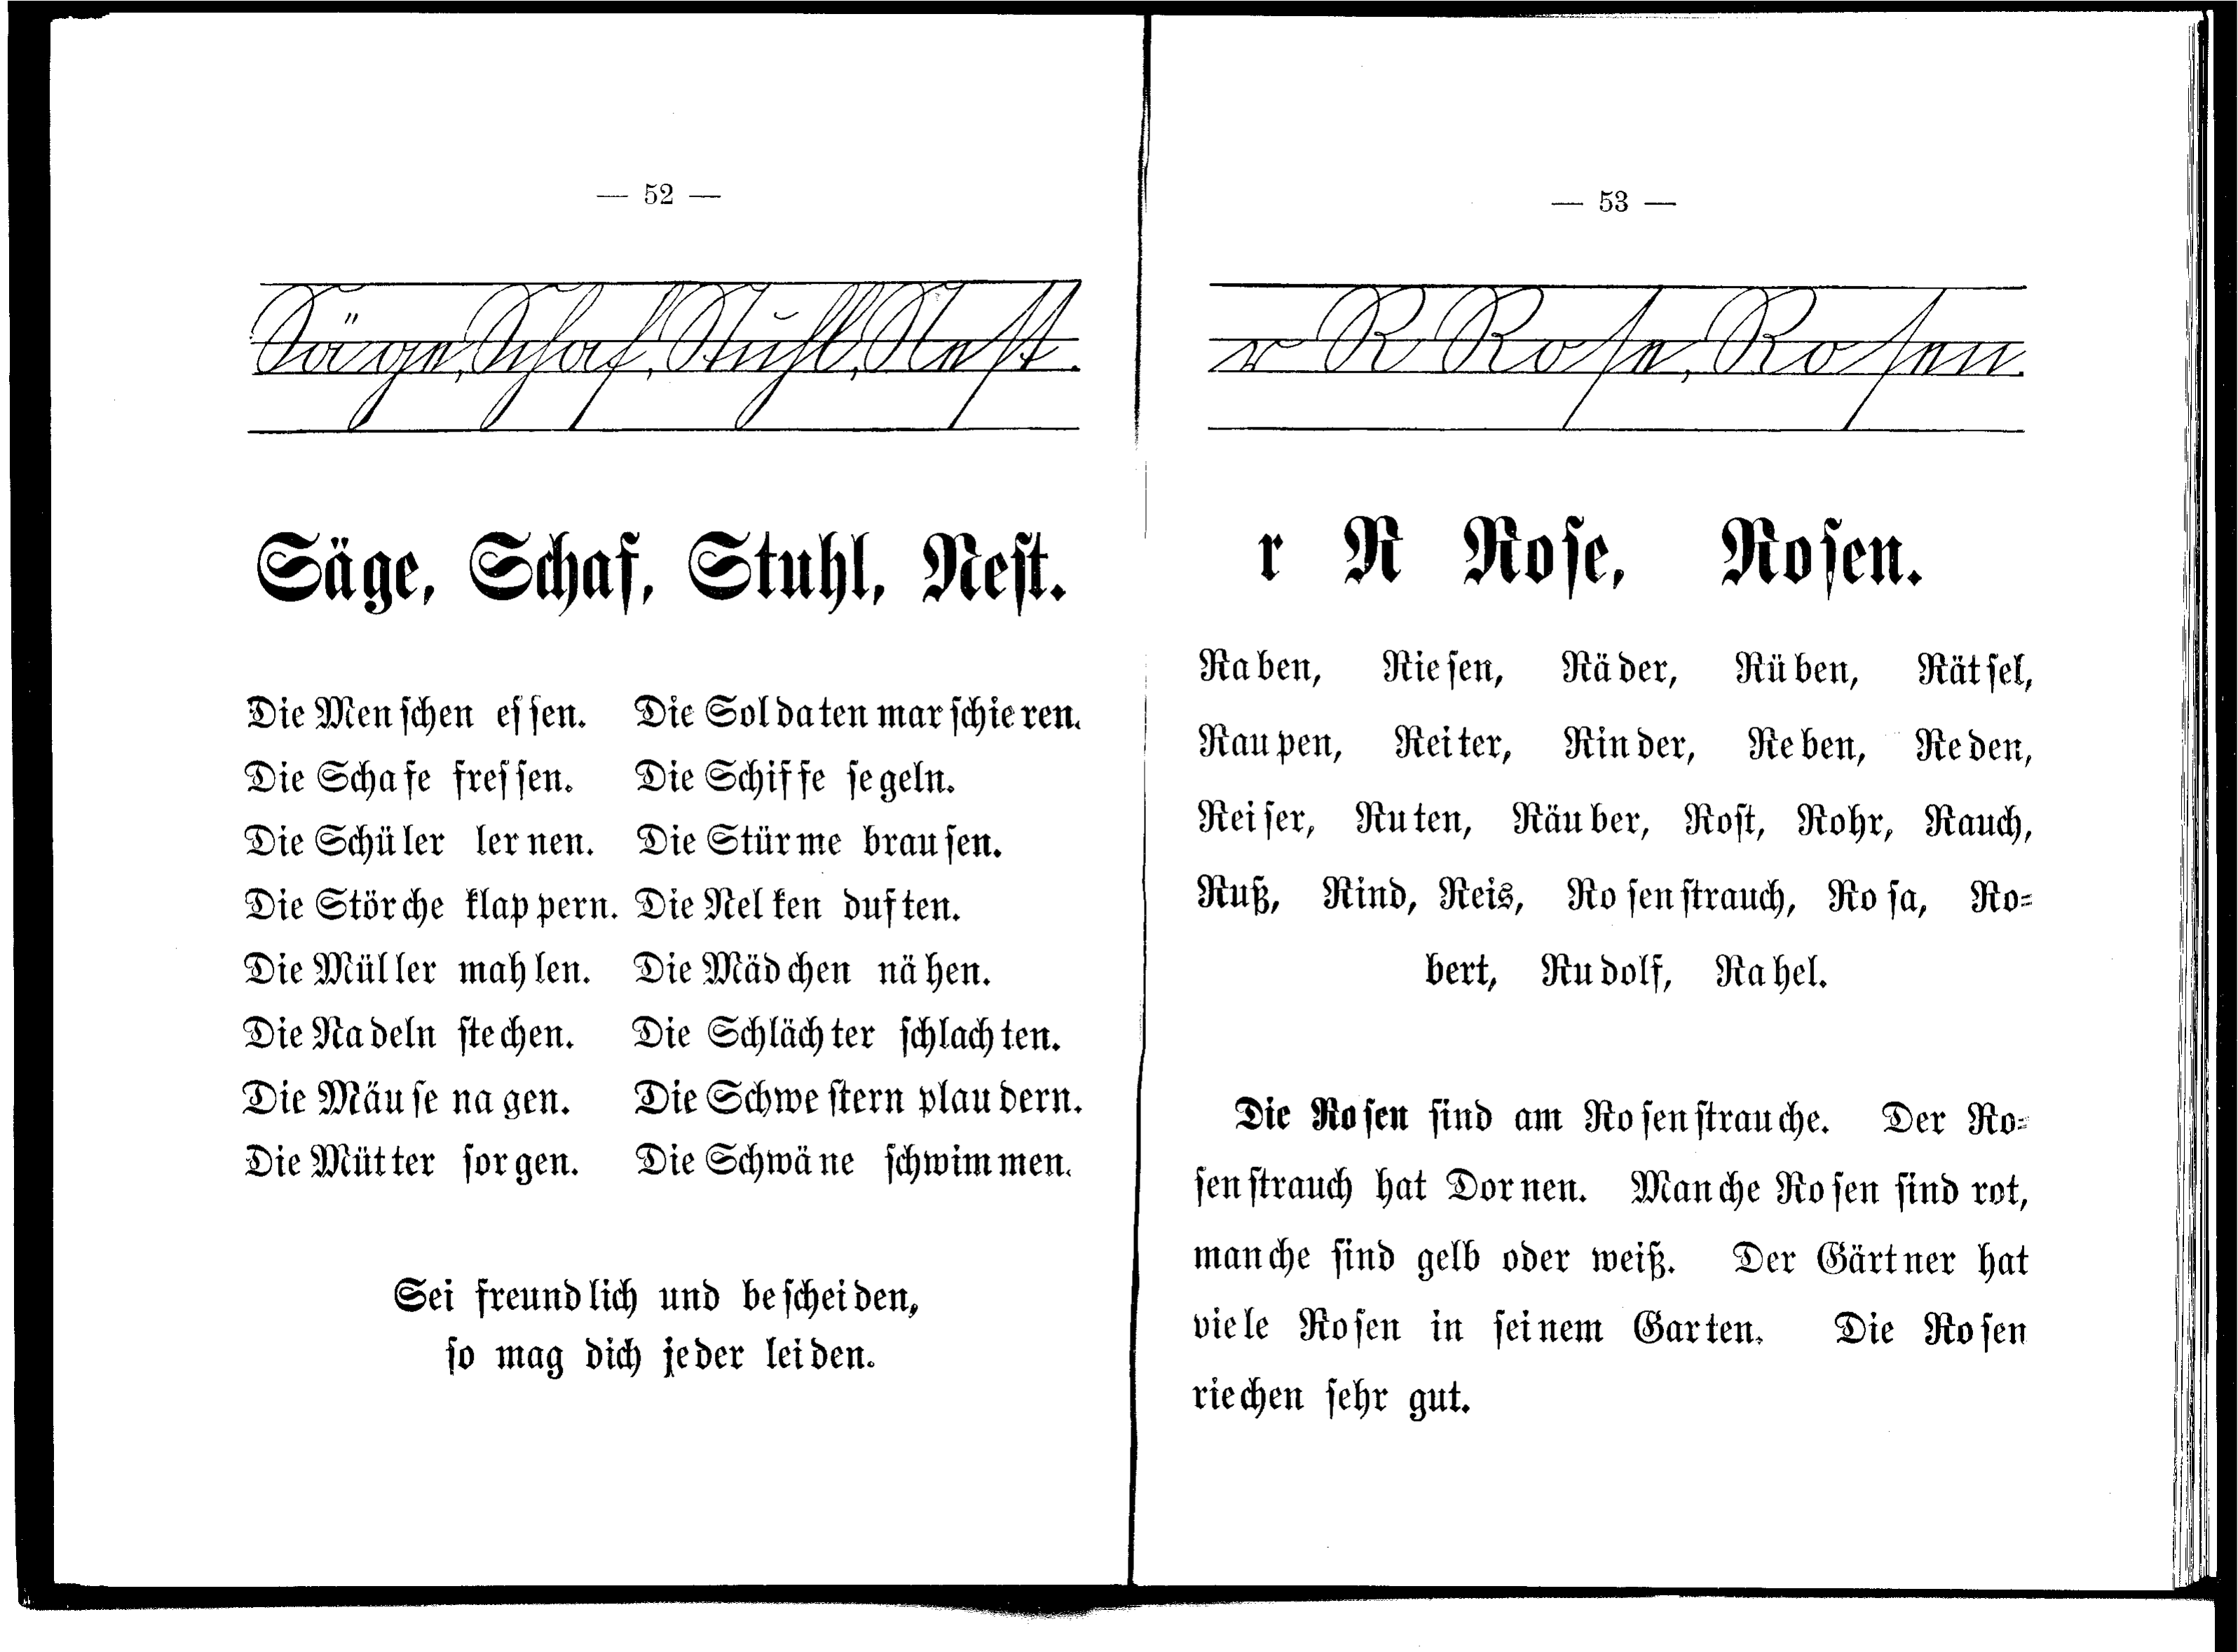 — 52 —
Säge, Schaf, Stuhl, Nest.
Säge, Schaf, Stuhl, Nest.
Die Men ſchen eſ ſen. Die Sol da ten mar ſchie ren.
Die Scha fe freſ ſen. Die Schif fe ſe geln.
Die Schü ler ler nen. Die Stür me brau ſen.
Die Stör che klap pern. Die Nel ken duf ten.
Die Mül ler mah len. Die Mäd chen nä hen.
Die Na deln ſte chen. Die Schläch ter ſchlach ten.
Die Mäu ſe na gen. Die Schwe ſtern plau dern.
Die Müt ter ſor gen. Die Schwä ne ſchwim men.
Sei freund lich und be ſchei den,
ſo mag dich je der lei den.
— 53 —
r R Roſe, Roſen.
r R Ro ſe, Ro ſen.
Ra ben, Rie ſen, Rä der, Rü ben, Rät ſel,
Rau pen, Rei ter, Rin der, Re ben, Re den,
Rei ſer, Ru ten, Räu ber, Roſt, Rohr, Rauch,
Ruß, Rind, Reis, Ro ſen ſtrauch, Ro ſa, Ro⸗
bert, Ru dolf, Ra hel.
Die Ro ſen ſind am Ro ſen ſtrau che. Der Ro⸗
ſen ſtrauch hat Dor nen. Man che Ro ſen ſind rot,
man che ſind gelb oder weiß. Der Gärt ner hat
vie le Ro ſen in ſei nem Gar ten. Die Ro ſen
rie chen ſehr gut.